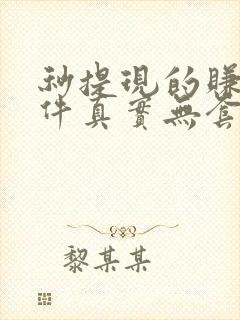 秒提現的賺
件真實無套
黎某某